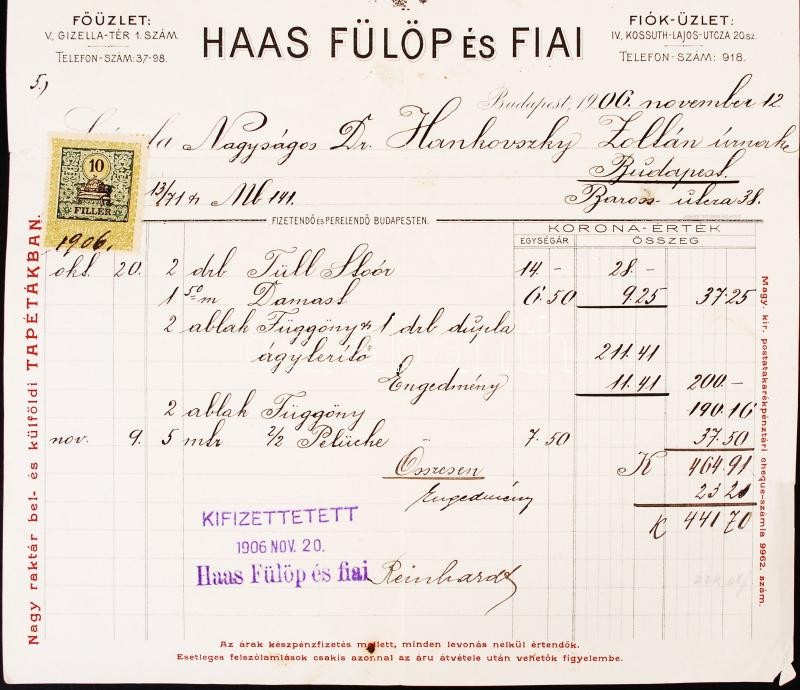 FŐÜZLET:
V, GIZELLA-TÉR 1. SZÁM.
TELEFON-SZÁM: 37-98.
HAAS FÜLÖP ÉS FIAI
FIÓK-ÜZLET:
IV, KOSSUTH-LAJOS-UTCZA 20 sz.
TELEFON-SZÁM: 918.
5.)
Budapest, 1906. november 12.
Nagyságos Dr. Hankovszky Zoltán úrnak
Budapest.
Baross-utcza 38.
10
FILLÉR
1906.
13/71 Mb 141.
FIZETENDŐ ÉS PERELENDŐ BUDAPESTEN.
KORONA-ÉRTÉK
EGYSÉGÁR ÖSSZEG
okt. 20. 2 drb Tüll Stoór 14.- 28.-
1 50 m Damast 6.50 9.25 37.25
2 ablak Függöny 1 drb dupla
ágyterítő 211.41
Engedmény 11.41 200.-
2 ablak Függöny 190.16
nov. 9. 5 mtr 2/2 Pelüche 7.50 37.50
Összesen K 464.91
Engedmény 23 21
K 441 70
KIFIZETTETETT
1906 NOV. 20.
Haas Fülöp és fiai
Reinhardt
Nagy raktár bel- és külföldi TAPÉTÁKBAN.
Magy. kir. postatakarékpénztári cheque-számla 9962. szám.
Az árak készpénzfizetés mellett, minden levonás nélkül értendők.
Esetleges felszólamlások csakis azonnal az áru átvétele után vehetők figyelembe.